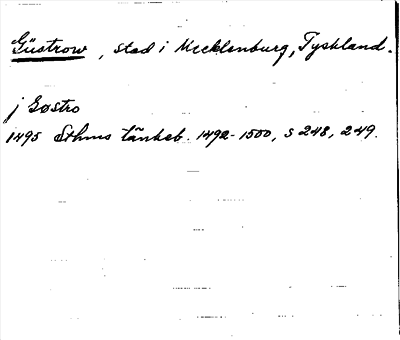 Güstrow, stad i Mecklenburg, Tyskland.
j Gøstro
1495 Sthms tänkeb. 1492-1500, s 248, 249.